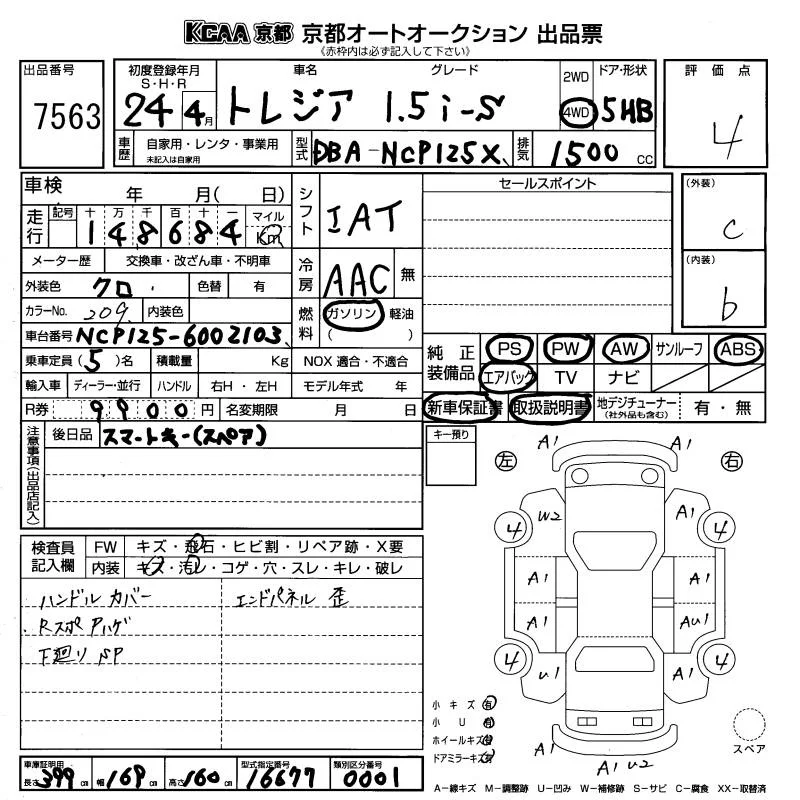 KCAA 京都 京都オートオークション 出品票
《赤枠内は必ず記入して下さい》
出品番号
7563
初度登録年月 車名 グレード
S・H・R
24 4月 トレジア 1.5 i-S
2WD
4WD
ドア・形状
5HB
評価点
4
車歴 自家用・レンタ・事業用
未記入は自家用
型式 DBA-NCP125X
排気 1500 CC
車検 年 月( 日)
走行 記号 十 万 千 百 十 一 マイル
1 4 8 6 8 4 Km
メーター歴 交換車・改ざん車・不明車
外装色 クロ 色替 有
カラーNo. 209 内装色
車台番号 NCP125-6002103
乗車定員 (5)名 積載量 Kg NOX 適合・不適合
輸入車 ディーラー・並行 ハンドル 右H・左H モデル年式 年
R券 9900円 名変期限 月 日
シフト IAT
冷房 AAC 無
燃料 ガソリン 軽油
( )
セールスポイント
(外装)
c
(内装)
b
純正装備品 PS PW AW サンルーフ ABS
エアバック TV ナビ
新車保証書 取扱説明書 地デジチューナー 有・無
(社外品も含む)
注意事項(出品店記入)
後日品 スマートキー(スペア)
キー預り
検査員記入欄
FW キズ・飛石・ヒビ割・リペア跡・X要
内装 キズ・汚レ・コゲ・穴・スレ・キレ・破レ
ハンドル カバー エンドパネル 歪
Rスポ アハゲ
下廻り SP
左 右
A1 A1
4 W2 A1 4
A1 A1
A1 AU1
4 U1 A1 4
A1 A1 U2
小キズ 有
小U 有
ホイールキズ 有
ドアミラーキズ 有
スペア
車庫証明用
長さ 399 cm 幅 169 cm 高さ 160 cm
型式指定番号 16677
類別区分番号 0001
A−線キズ M−調整跡 U−凹み W−補修跡 S−サビ C−腐食 XX−取替済